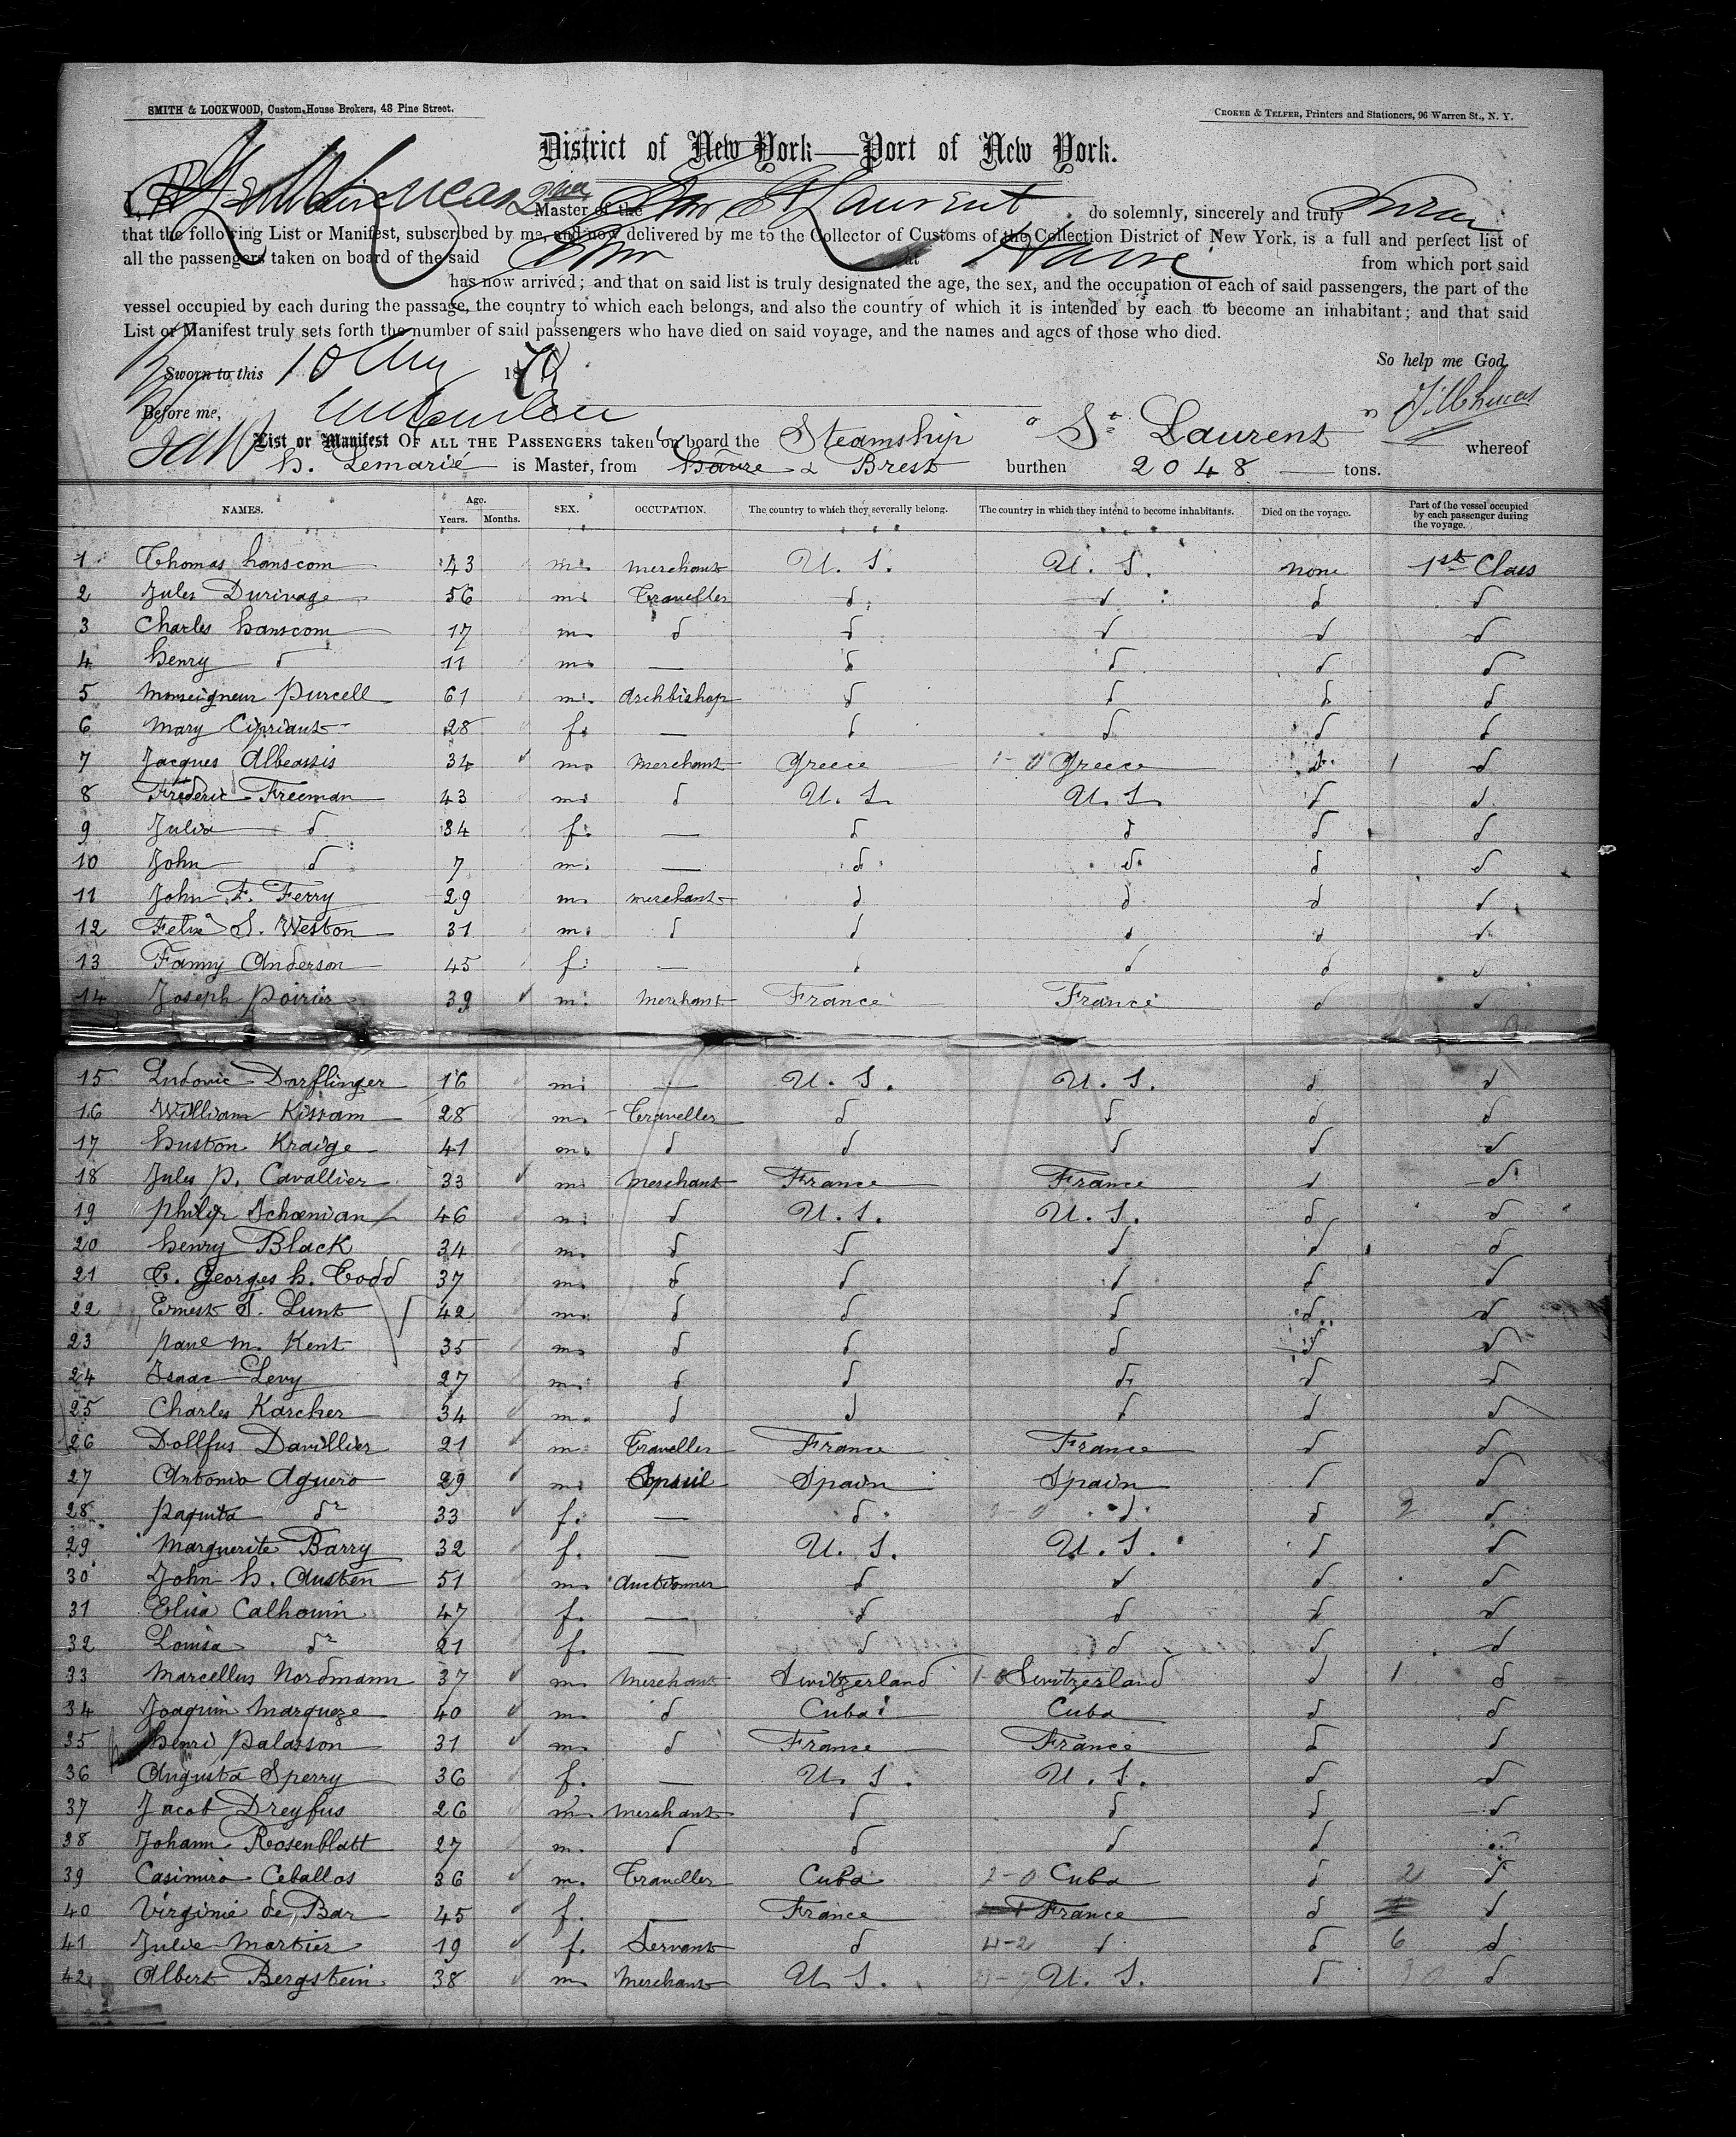 SMITH & LOCKWOOD, Custom House Brokers, 43 Pine Street.
CROKER & TELFER, Printers and Stationers, 96 Warren St., N. Y.
District of New York—Port of New York.
I, Master of the Str St Laurent do solemnly, sincerely and truly swear
that the following List or Manifest, subscribed by me, and now delivered by me to the Collector of Customs of the Collection District of New York, is a full and perfect list of
all the passengers taken on board of the said Str at Havre from which port said
has now arrived; and that on said list is truly designated the age, the sex, and the occupation of each of said passengers, the part of the
vessel occupied by each during the passage, the country to which each belongs, and also the country of which it is intended by each to become an inhabitant; and that said
List or Manifest truly sets forth the number of said passengers who have died on said voyage, and the names and ages of those who died.
So help me God.
Sworn to this 10 Aug 1870
Before me,
List or Manifest OF ALL THE PASSENGERS taken on board the Steamship "St Laurent" whereof
H. Lemarié is Master, from Havre & Brest burthen 2048 tons.
NAMES. Age. Years. Months. SEX. OCCUPATION. The country to which they severally belong. The country in which they intend to become inhabitants. Died on the voyage. Part of the vessel occupied by each passenger during the voyage.
1 Thomas Hanscom 43 m. merchant U. S. U. S. none 1st Class
2 Jules Durivage 56 m. Traveller d d d d
3 Charles Hanscom 17 m. d d d d d
4 Henry d 11 m. — d d d d
5 Monseigneur Purcell 61 m. Archbishop d d d d
6 Mary Cipriant 28 f. — d d d d
7 Jacques Albeassis 34 m. Merchant Greece 1-0 Greece d 1 d
8 Frederic Freeman 43 m. d U. S. U. S. d d
9 Julia d 34 f. — d d d d
10 John d 7 m. — d d d d
11 John F. Ferry 29 m. merchant d d d d
12 Felix S. Weston 31 m. d d d d d
13 Fanny Anderson 45 f. — d d d d
14 Joseph Poirier 39 m. Merchant France France d d
15 Ludovic Dorflinger 16 m. — U. S. U. S. d d
16 William Kissam 28 m. Traveller d d d d
17 Huston Kraige 41 m. d d d d d
18 Jules P. Cavallier 33 m. Merchant France France d d
19 Philip Schoenian 46 m. d U. S. U. S. d d
20 Henry Black 34 m. d d d d d
21 C. Georges H. Todd 37 m. d d d d d
22 Ernest T. Lunt 42 m. d d d d d
23 Paul M. Kent 35 m. d d d d d
24 Isaac Levy 27 m. d d d d d
25 Charles Karcher 34 m. d d d d d
26 Dollfus Davillier 21 m. Traveller France France d d
27 Antonio Aguero 29 m. Spain Spain d d
28 Paquita do 33 f. — d d d 2 d
29 Marguerite Barry 32 f. — U. S. U. S. d d
30 John H. Austen 51 m. Auctionner d d d d
31 Elisa Calhoun 47 f. — d d d d
32 Louisa do 21 f. — d d d d
33 Marcellus Nordmann 37 m. Merchant Switzerland 1-0 Switzerland d 1 d
34 Joaquim Marqueze 40 m. d Cuba Cuba d d
35 Henri Palasson 31 m. d France France d d
36 Augusta Sperry 36 f. — U. S. U. S. d d
37 Jacob Dreyfus 26 m. Merchant d d d d
38 Johann Rosenblatt 27 m. d d d d
39 Casimiro Ceballos 36 m. Traveller Cuba 2-0 Cuba d 2 d
40 Virginie de Bar 45 f. — France France d d
41 Julie Mortier 19 f. Servant d 4-2 d d 6 d
42 Albert Bergstein 38 m. Merchant U. S. U. S. d d